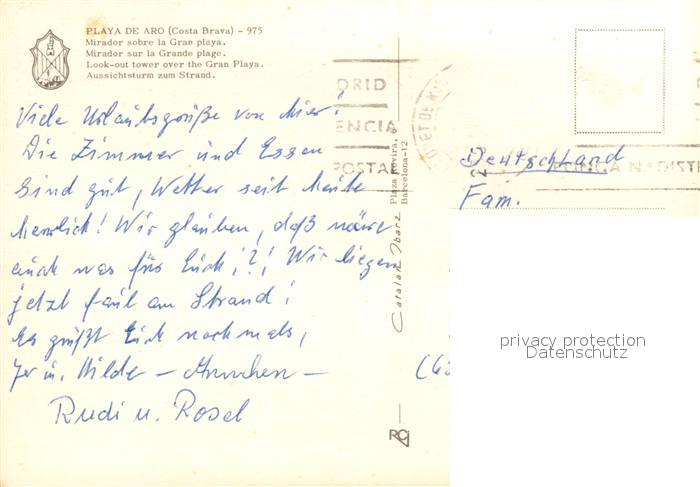 PLAYA DE ARO (Costa Brava) - 975
Mirador sobre la Gran playa.
Mirador sur la Grande plage.
Look-out tower over the Gran Playa.
Aussichtsturm zum Strand.
Viele Urlaubsgrüße von hier!
Die Zimmer und Essen
sind gut, Wetter seit heute
herrlich! Wir glauben, daß wäre
auch was für Euch!?! Wir liegen
jetzt faul am Strand!
Es grüßt Euch nochmals,
Hilde
Rudi u. Rosel
Catalan Ibarz
Plaza Rovira, 6
Barcelona-12
DRID
ENCIA
POSTAL
Deutschland
Fam.
privacy protection
Datenschutz